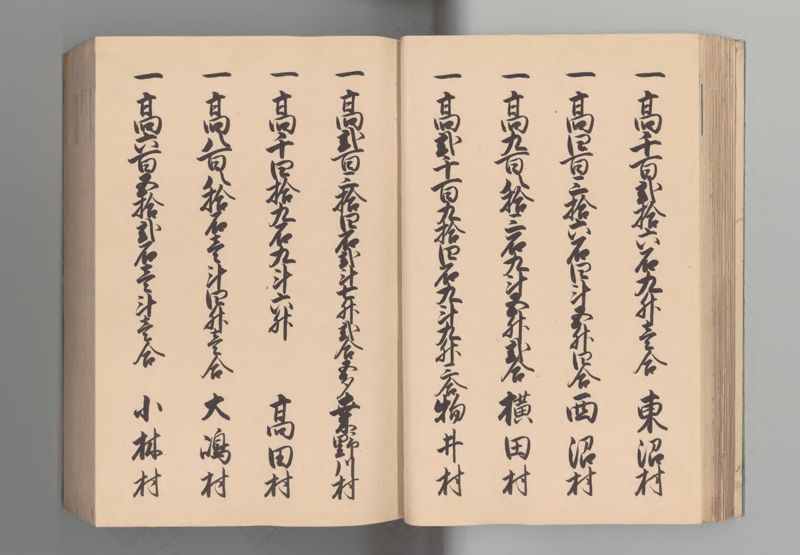 一 高千百弐拾六石九升壱合 東沼村
一 高四百三拾六石四斗五升四合 西沼村
一 高九百八拾三石九斗五升弐合 横田村
一 高弐千百九拾四石九斗九升三合 物井村
一 高弐百三拾四石弐斗七升弐合 桑野川村
一 高千四拾九石九斗六升 高田村
一 高八百八拾石壱斗四升壱合 大嶋村
一 高六百五拾弐石壱斗壱合 小林村